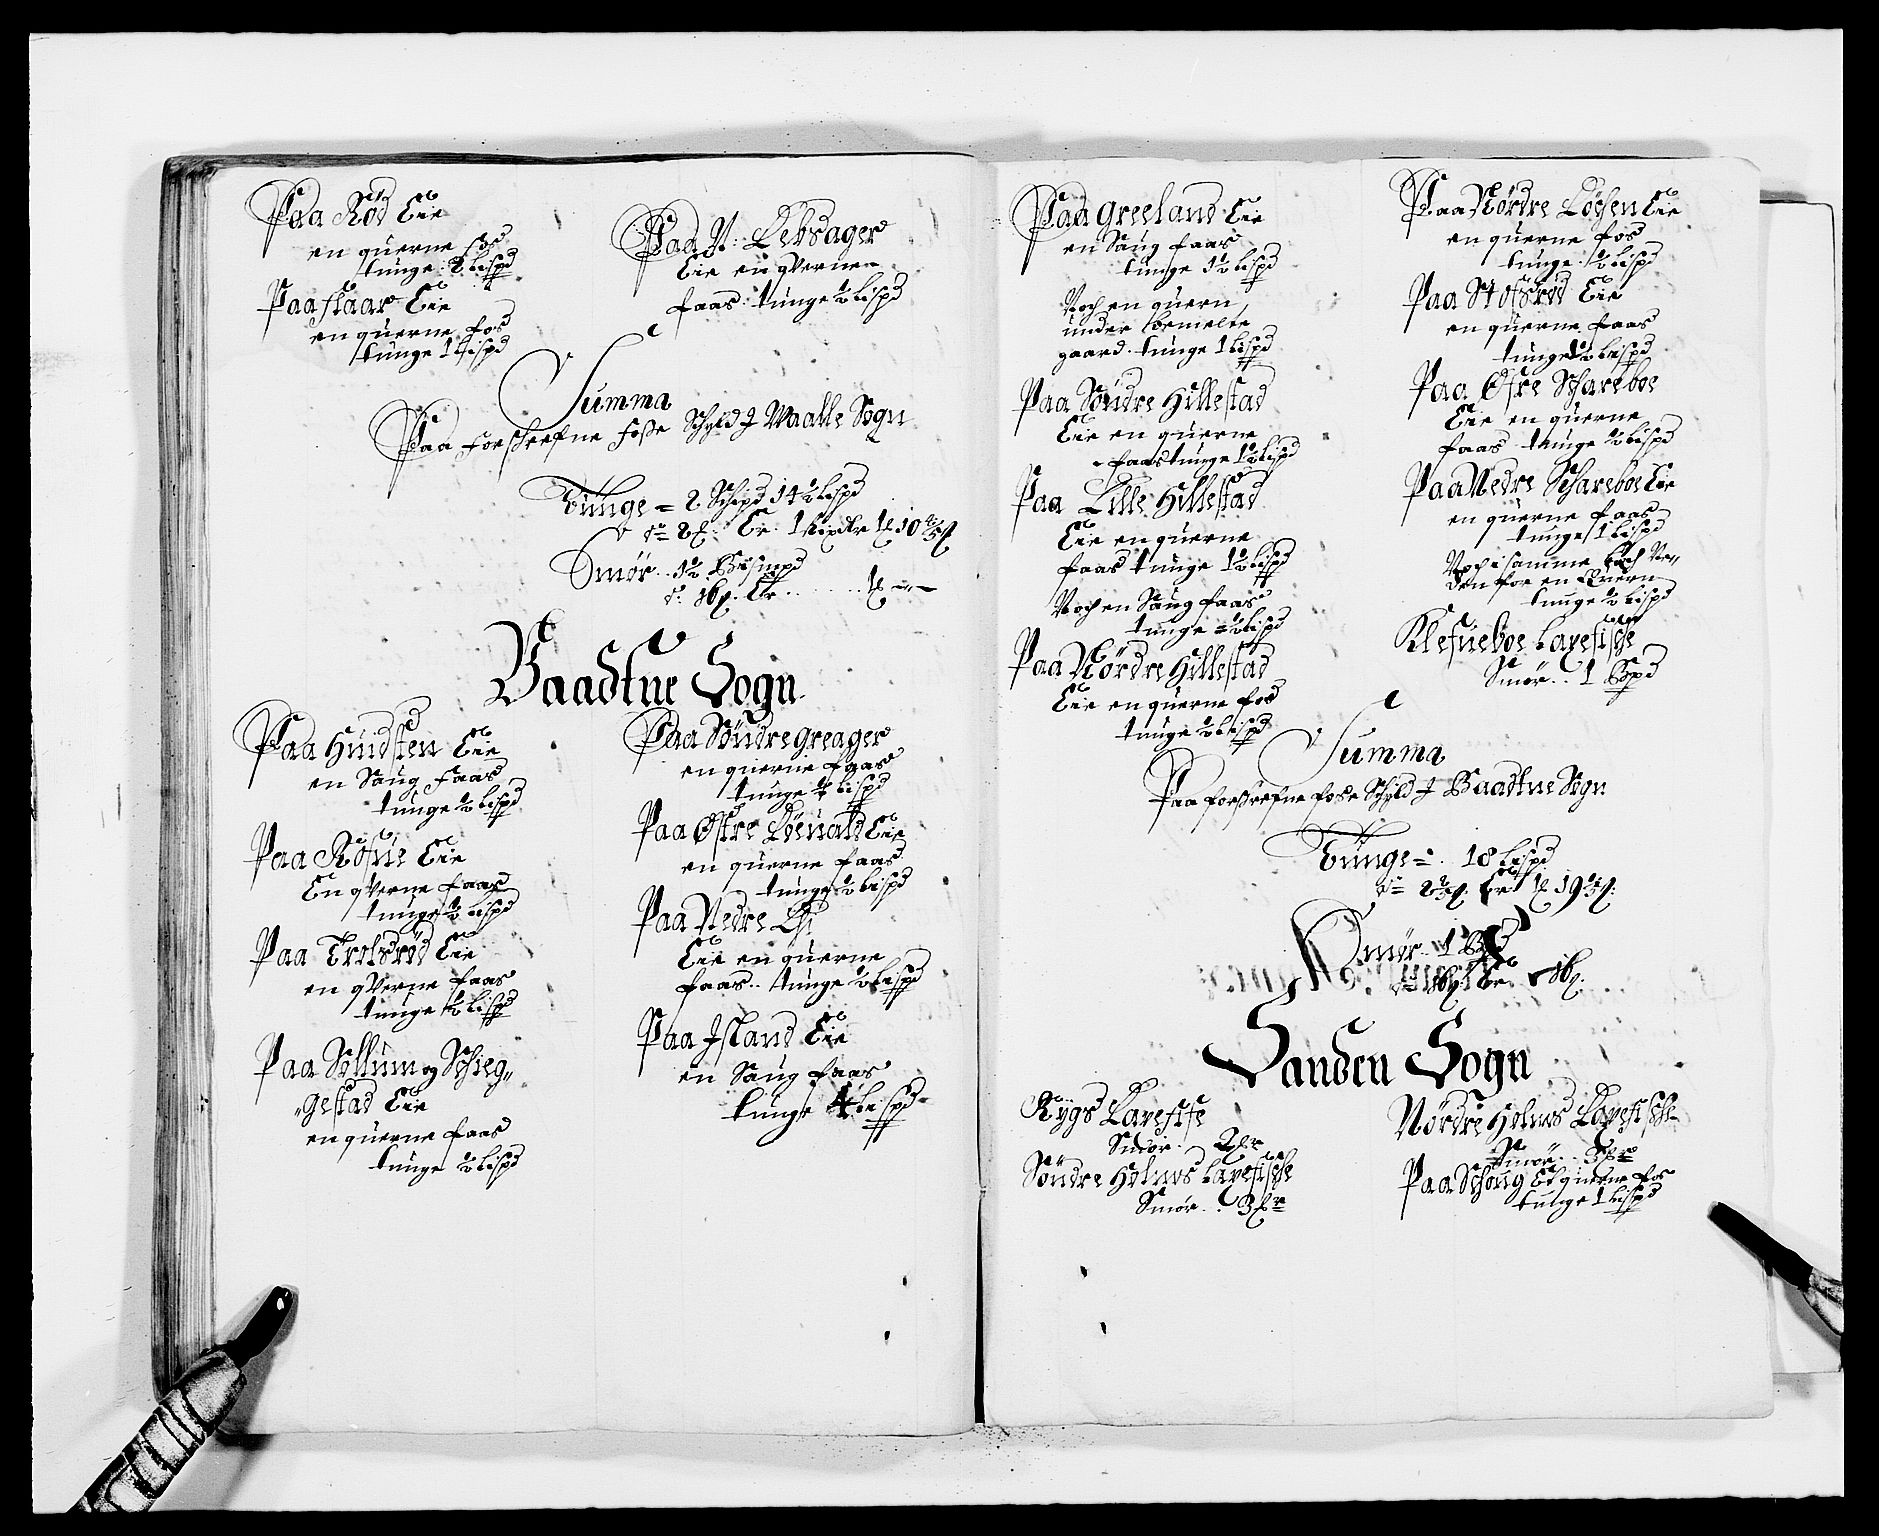 Paa Rød Eie
en querne fos
tunge: 2 Lispd
Paa skaar Eie
en querne fos
tunge 1 Lispd
Paa N: Lebsager
Eie en qverne
faas: tunge ½ Lispd
Summa
Paa forschrefne fosse Schyld I Waalle Sogn
Tunge = 2 Schipd 14½ Lispd
Smør .. 1½ Bismpd
Baadtne Sogn
Paa Huidsten Eie
en Saug faas
tunge ½ Lispd
Paa Rosnæ Eie
En qverne faas
tunge ½ Lispd
Paa Trolsrød Eie
en qverne faas
tunge ½ Lispd
Paa Sollum og Schieg„
„gestad Eie
en querne faas
tunge ½ Lispd
Paa Søndre greager
en querne faas
tunge ½ Lispd
Paa Østre Løenald Eie
en querne faas
tunge ½ Lispd
Paa Nedre Lh
Eie en querne
faas .. tunge ½ Lispd
Paa Island Eie
en Saug faas
tunge 4 Lispd
Paa greeland Eie
en Saug faas
tunge 1½ Lispd
Noch en quern
under bemelte
gaard. tunge 1 Lispd
Paa Søndre Hillestad
Eie en querne
faas tunge 1½ Lispd
Paa Lille Hillestad
Eie en querne
faas tunge 1½ Lispd
Noch en Saug faas
tunge = ½ Lispd
Paa Nørdre Hillestad
Eie en querne fos
tunge ½ Lispd
Paa Nørdre Løesen Eie
en querne fos
tunge ½ Lispd
Paa Stofsrød Eie
en querne faas
tunge ½ Lispd
Paa Øfre Schareboe
Eie en querne
faas tunge ½ Lispd
Paa Nedre Schareboe Eie
en querne faas
tunge 1 Lispd
Noch i samme bech Ne„
den for en Quern
tunge ½ Lispd
Klefueboe Laxefische
Smør .. 1 Bpd
Summa
Paa forschrefne fosse Schyld I Baadtne Sogn
Tunge = . 18 Lispd
Smør .. 1 Bpd
Sanden Sogn
Rygs Laxefische
Smør ..
Søndre Holmes Laxefische
Smør .. 3
Nørdre Holmes Laxefische
Smør .. 3
Paa Schoug Et querne fos
tunge 1 Lispd